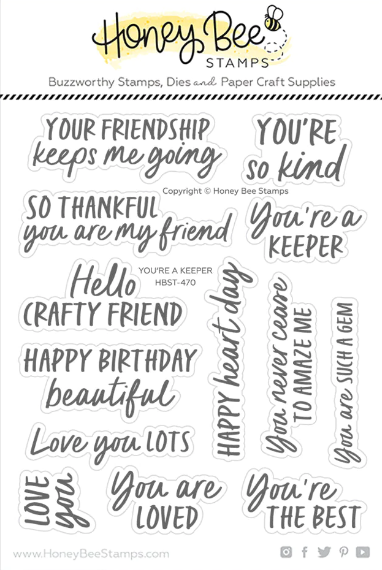 Honey Bee
STAMPS
Buzzworthy Stamps, Dies and Paper Craft Supplies
YOUR FRIENDSHIP
keeps me going
YOU'RE
so kind
Copyright © Honey Bee Stamps
SO THANKFUL
you are my friend
You're a
KEEPER
Hello
CRAFTY FRIEND
YOU'RE A KEEPER
HBST-470
HAPPY heart day
You never cease
TO AMAZE ME
You are SUCH A GEM
HAPPY BIRTHDAY
beautiful
Love you LOTS
LOVE
you
You are
LOVED
You're
THE BEST
www.HoneyBeeStamps.com